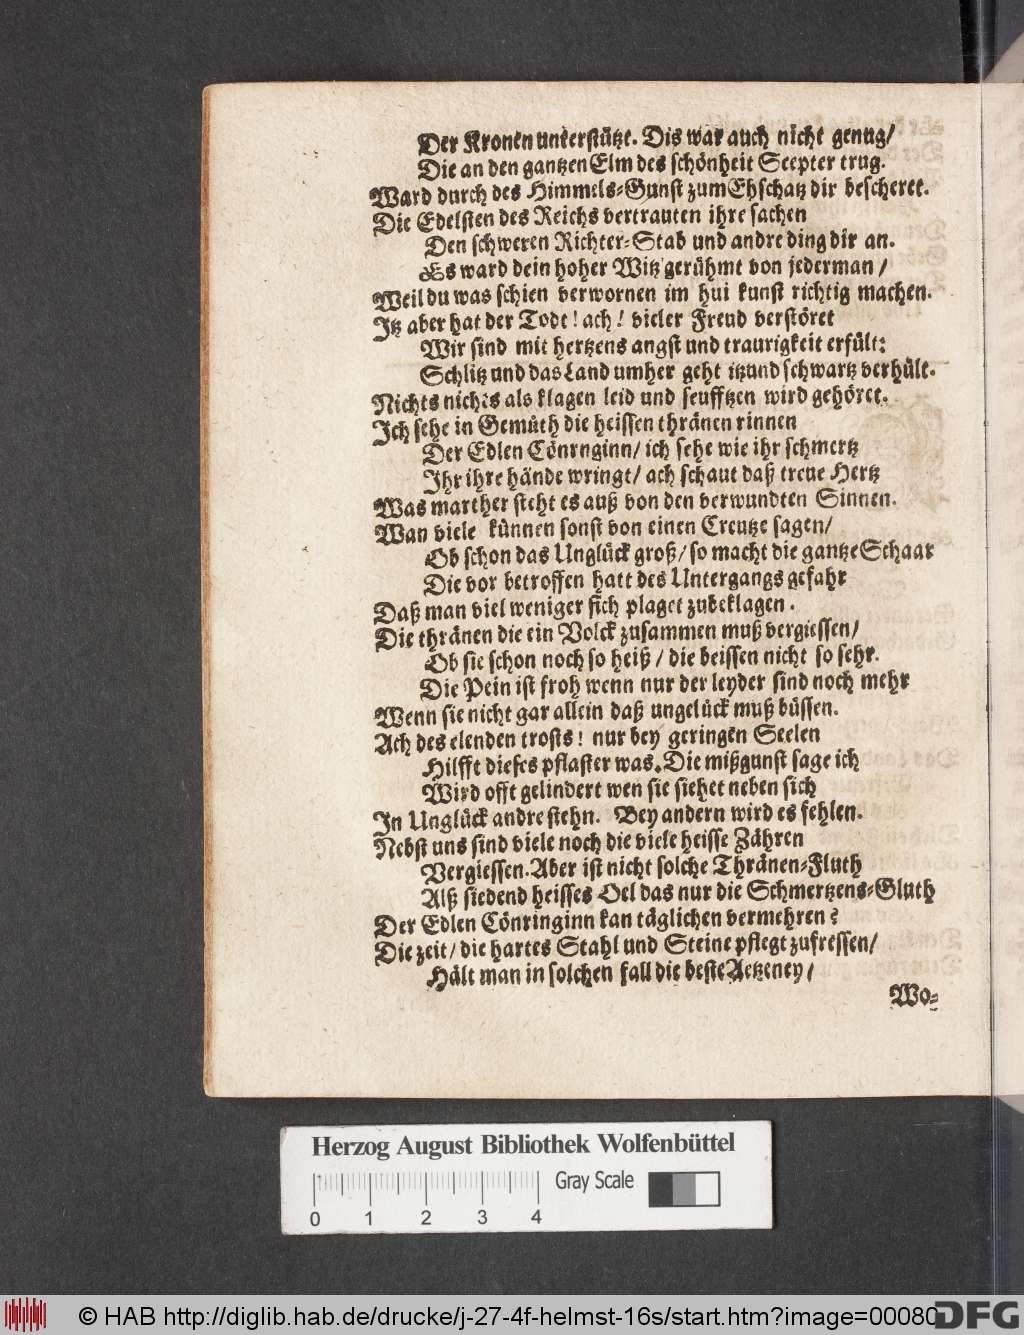 Der Kronen unterstützt. Dis war auch nicht genug/
Die an den gantzen Elm des schönheit Scepter trug.
Ward durch des Himmels-Gunst zum Ehschatz dir bescheret.
Die Edelsten des Reichs vertrauten ihre sachen
Den schweren Richter-Stab und andre ding dir an.
Es ward dein hoher Witz gerühmt von jederman /
Weil du was schien verwornen im hui kunst richtig machen.
Itz aber hat der Todt! ach! vieler Freud verstöret
Wir sind mit hertzens angst und traurigkeit erfült:
Schlitz und das Land umher geht itzund schwartz verhült.
Nichts nichts als klagen leid und seufftzen wird gehöret.
Ich sehe in Gemüth die heissen thränen rinnen
Der Edlen Cönrnginn/ ich sehe wie ihr schmertz
Ihr ihre hände wringt/ ach schaut daß treue Hertz
Was marther steht es auß von den verwundten Sinnen.
Wan viele künnen sonst von einen Creutze sagen/
Ob schon das Unglück groß/ so macht die gantze Schaar
Die vor betroffen hatt des Untergangs gefahr
Daß man viel weniger sich plaget zubeklagen.
Die thränen die ein Volck zusammen muß vergiessen/
Ob sie schon noch so heiß / die beissen nicht so sehr.
Die Pein ist froh wenn nur der leyder sind noch mehr
Wenn sie nicht gar allein daß ungelück muß büssen.
Ach des elenden trosts! nur bey geringen Seelen
Hilfft dieses pflaster was. Die mißgunst sage ich
Wird offt gelindert wen sie siehet neben sich
In Unglück andre stehn. Bey andern wird es fehlen.
Nebst uns sind viele noch die viele heisse Zähren
Vergiessen. Aber ist nicht solche Thränen-Fluth
Alß siedend heisses Oel das nur die Schmertzens-Gluth
Der Edlen Cönringinn kan täglichen vermehren?
Die zeit/ die hartes Stahl und Steine pflegt zufressen/
Hält man in solchen fall die beste Aetzeney/
Wo-
Herzog August Bibliothek Wolfenbüttel
Gray Scale
0 1 2 3 4
© HAB http://diglib.hab.de/drucke/j-27-4f-helmst-16s/start.htm?image=00080
DFG